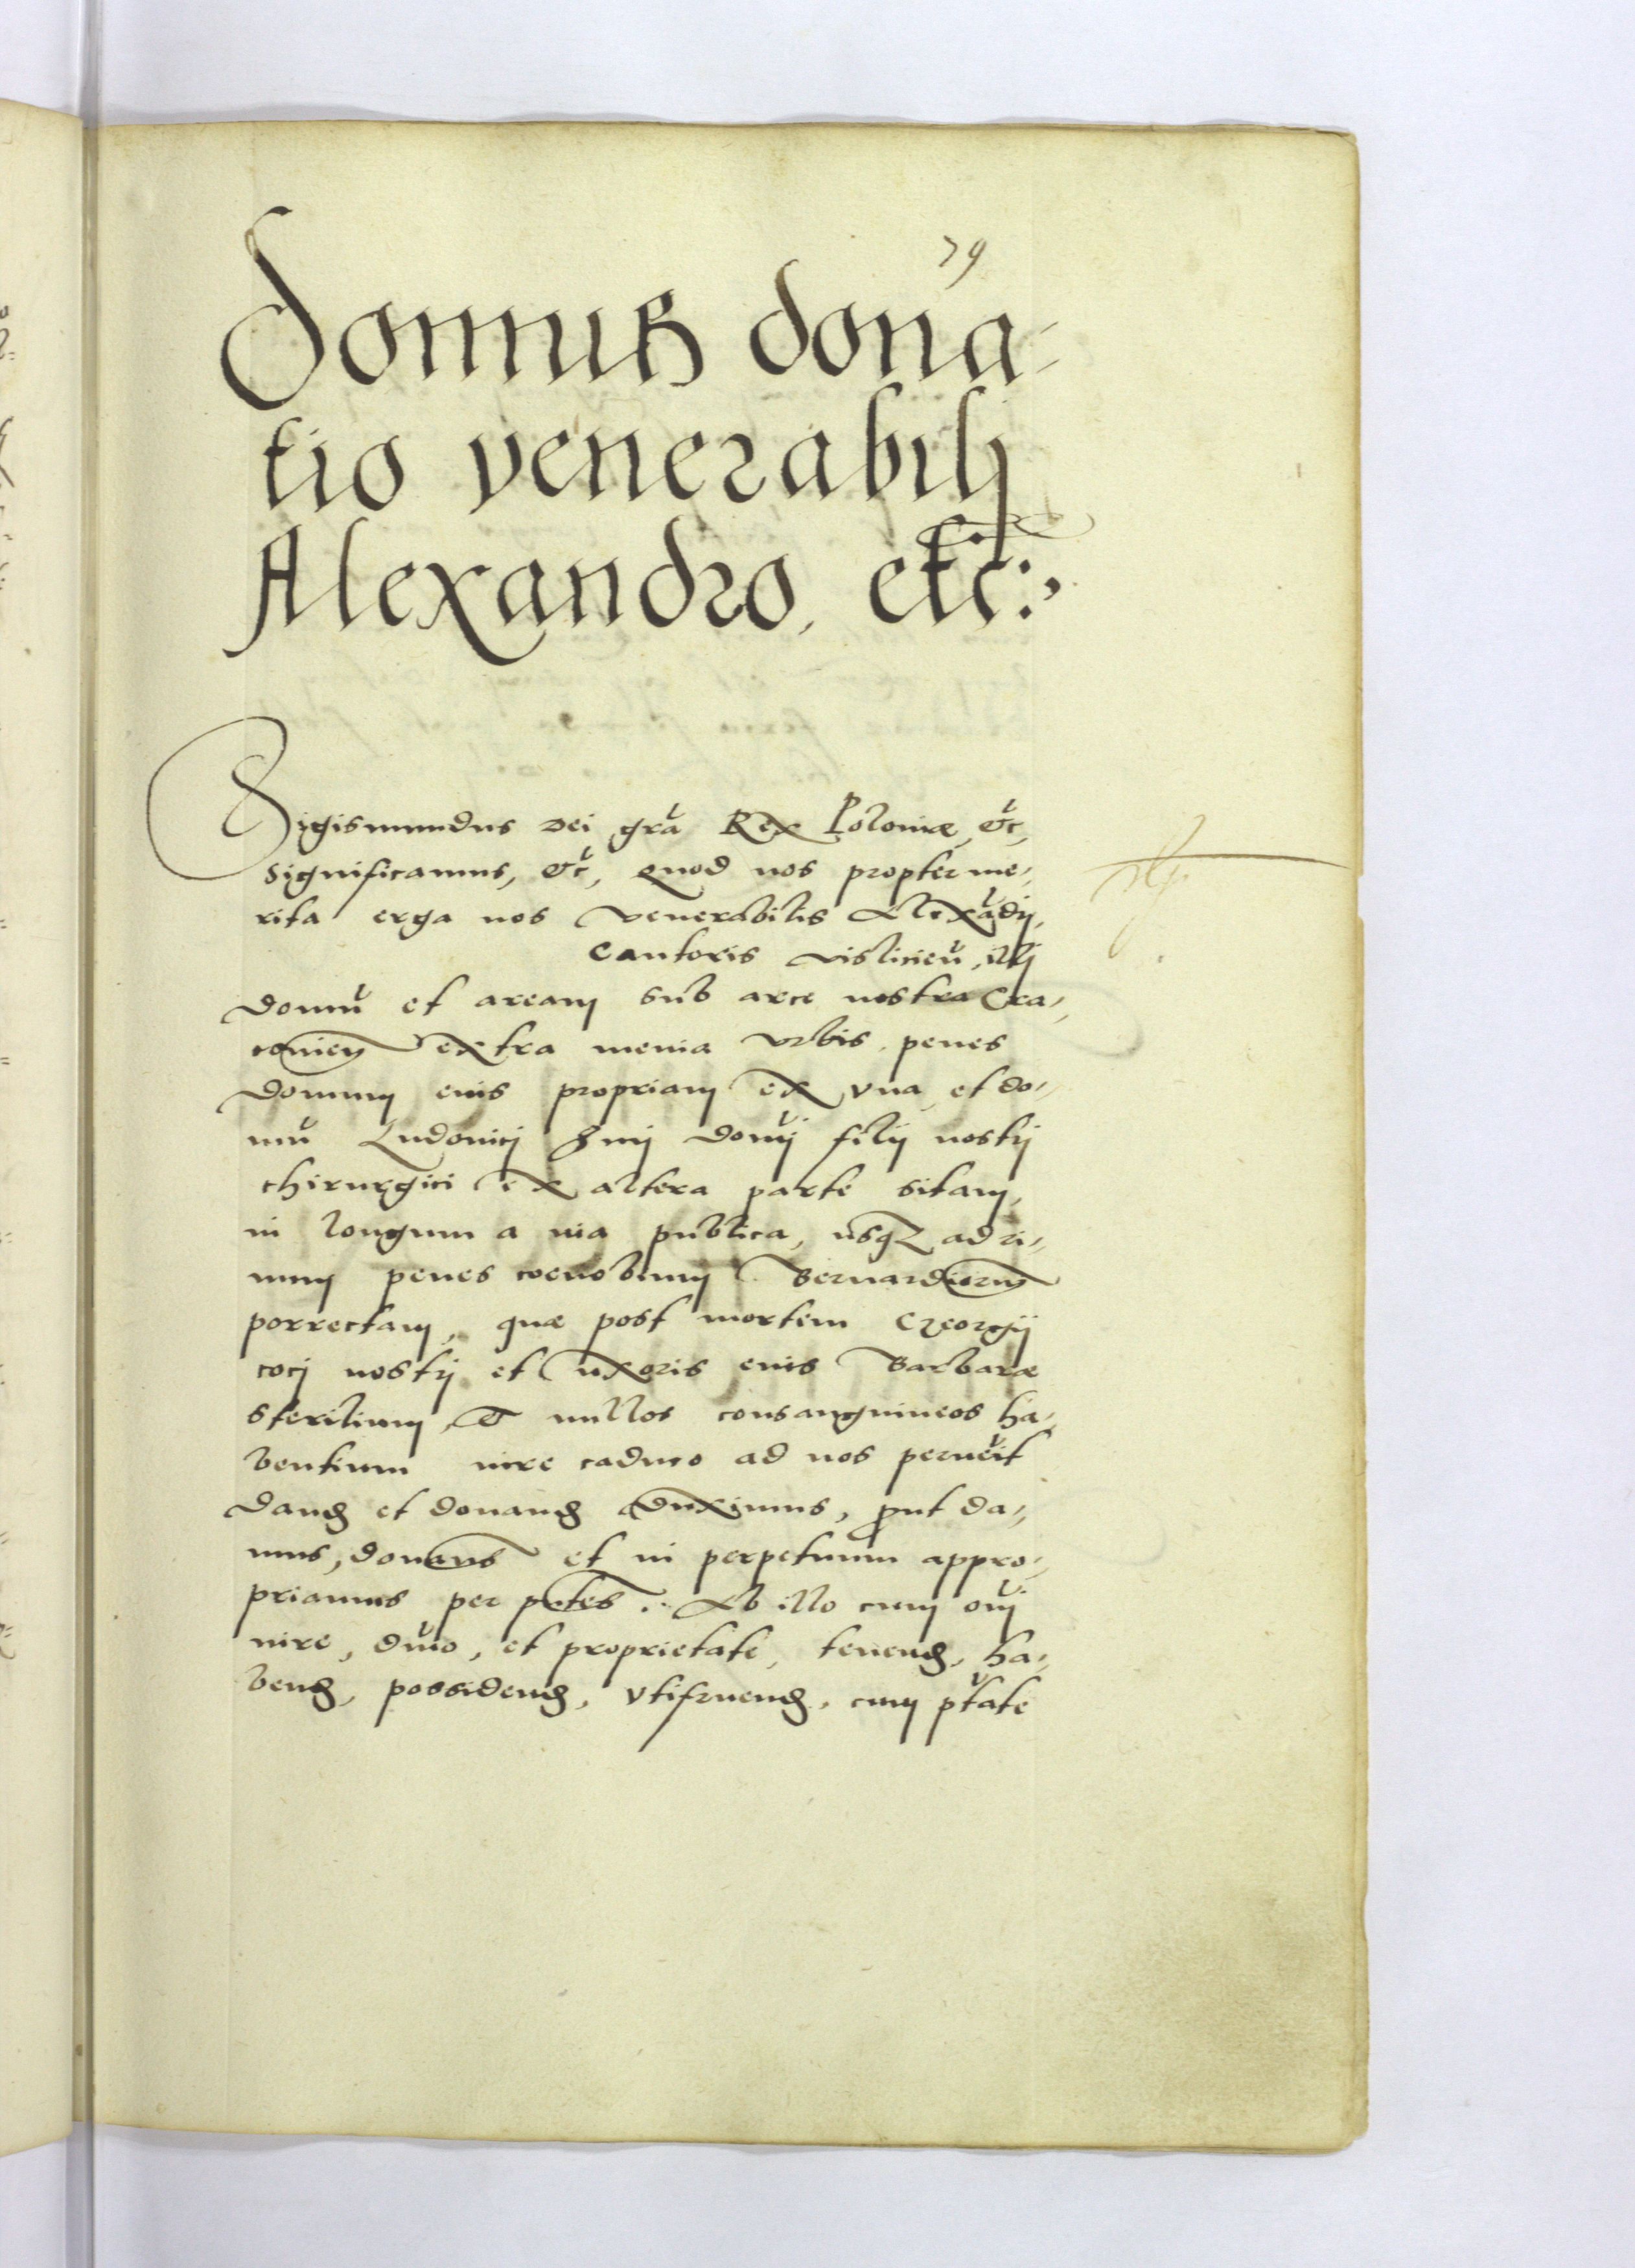 79
Domus dona-
tio venerabilj
Alexandro, etc:,
Sigismundus Dei gr̃a Rex Poloniæ, &c̃,
significamus, &c̃, Quod nos propter me-,
rita erga nos venerabilis Alexãdrj,
Cantoris vislicieñ, illj
domũ et aream sub arce nostra Cra-,
covieñ extra menia Vrbis penes
domum eius propriam ex vna, et do-
mũ Ludovicj Smj domĩj filij nostrj
chirurgici ex altera parte sitam,
in longum a via publica, usq3 ad ri-,
uum penes coenobium Bernardinorum
porrectam, quæ post mortem Georgij
cocj nostrj et uxoris eius Barbaræ
sterilium & nullos consanguineos ha-,
bentium iure caduco ad nos perueĩt
dand et donand duximus, ꝓut da-,
mus, donamus et in perpetuum appro-,
priamus per pñtes .: Ab illo cum oĩ
iure, dñio, et proprietate, tenend, ha-,
bend, possidend, vtifruend, cum ptãte